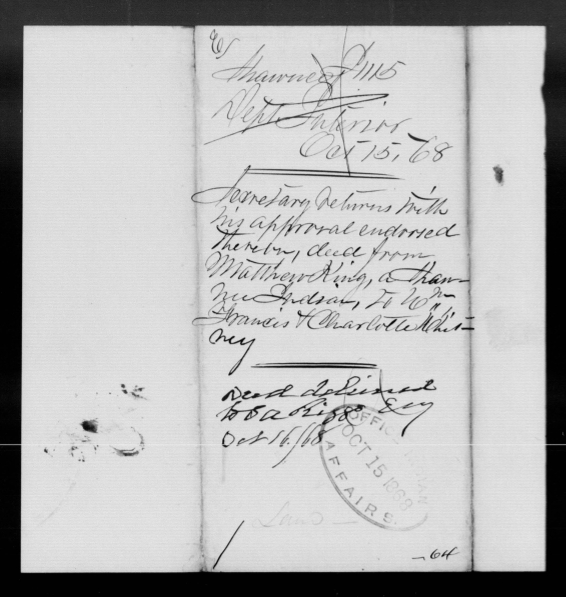 Shawnee I 1115
Dept Interior
Oct 15, '68
Secretary returns with
his approval endorsed
thereon, deed from
Matthew King, a Shaw-
nee Indian, to Wm
Francis & Charlotte Whit-
ney
Deed delivered
to Esq
Oct 16/68
OFFICE INDIAN
OCT 15 1868
AFFAIRS
Land
64